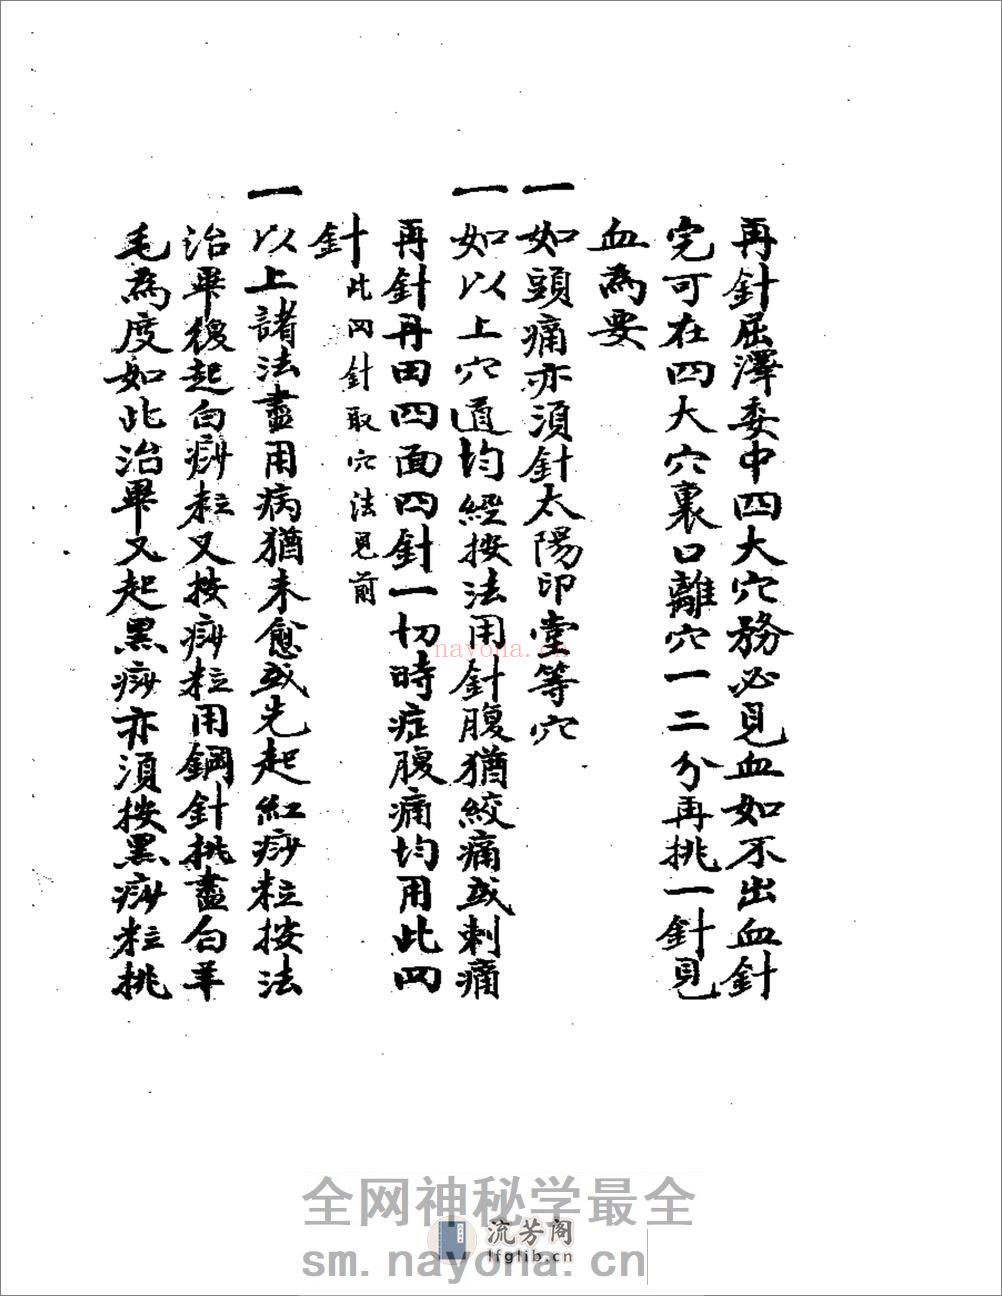 再針屈澤委中四大穴務必見血如不出血針
完可在四大穴裏口離穴一二分再挑一針見
血為要
一如頭痛亦須針太陽印堂等穴
一如以上穴道均經按法用針腹猶絞痛或刺痛
再針丹田四面四針一切時症腹痛均用此四
針此四針取穴法見前
一以上諸法盡用病猶未愈或先起紅痧粒按法
治畢後起白痧粒又按痧粒用鋼針挑盡白羊
毛為度如此治畢又起黑痧亦須按黑痧粒挑
nayona.cn
全网神秘学最全
流芳阁
lfglib.cn
sm.nayona.cn